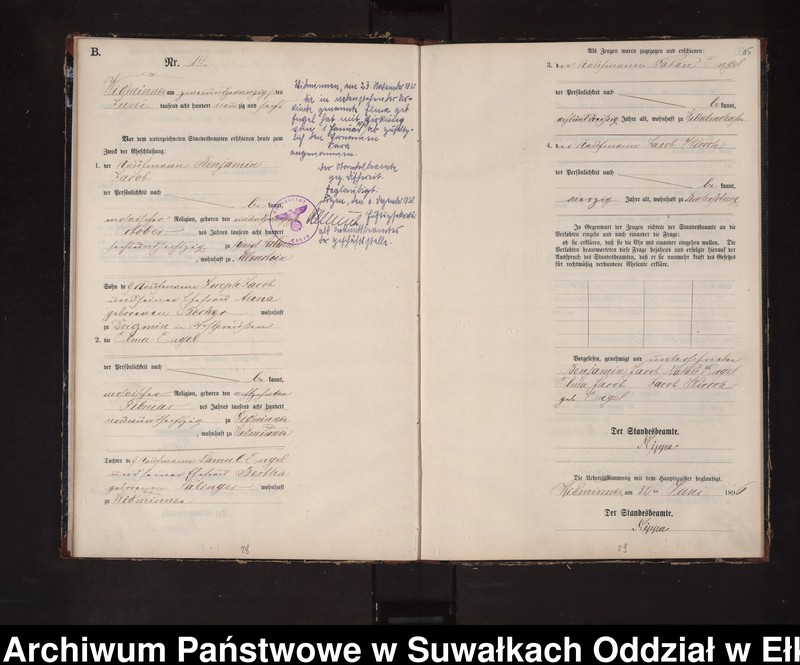 B.
Nr. 14.
Widminnen am zweiundzwanzigsten
Juni tausend acht hundert neunzig und sechs
Vor dem unterzeichneten Standesbeamten erschienen heute zum
Zweck der Eheschließung:
1. der Kaufmann Benjamin
Jacob
der Persönlichkeit nach
be kannt,
mosaischer Religion, geboren den
October des Jahres tausend acht hundert
sechsundsechzig zu
, wohnhaft zu Allenstein
Sohn des Kaufmann Joseph Jacob
und seiner Ehefrau Anna
geborenen wohnhaft
zu in Westpreußen
2. die Elma Engel
der Persönlichkeit nach
be kannt,
mosaischer Religion, geboren den achtzehnten
Februar des Jahres tausend acht hundert
neunundsechzig zu Widminnen
, wohnhaft zu Widminnen
Tochter des Kaufmann Samuel Engel
und seiner Ehefrau Bertha
geborenen wohnhaft
zu Widminnen
28
Widminnen, am 23. November 1938
Die in nebenstehender Ur-
kunde genannte Elma geb.
Engel hat mit Wirkung
vom 1. Januar 1939 ab zusätz-
lich den Vornamen
Sara
angenommen.
Der Standesbeamte
gez.
Beglaubigt.
Lötzen, den 6. Dezember 1938.
Justizsekretär
als Urkundsbeamter
der Geschäftsstelle.
Als Zeugen waren zugezogen und erschienen:
15
3. der Kaufmann Nathan Engel
der Persönlichkeit nach
be kannt,
achtunddreißig Jahre alt, wohnhaft zu
4. der Kaufmann Jacob Hirsch
der Persönlichkeit nach
be kannt,
vierzig Jahre alt, wohnhaft zu
In Gegenwart der Zeugen richtete der Standesbeamte an die
Verlobten einzeln und nach einander die Frage:
ob sie erklären, daß sie die Ehe mit einander eingehen wollen. Die
Verlobten beantworteten diese Frage bejahend und erfolgte hierauf der
Ausspruch des Standesbeamten, daß er sie nunmehr kraft des Gesetzes
für rechtmäßig verbundene Eheleute erkläre.
Vorgelesen, genehmigt und unterschrieben
Benjamin Jacob Nathan Engel
Elma Jacob Jacob Hirsch
geb. Engel
Der Standesbeamte.
Nippa
Die Uebereinstimmung mit dem Hauptregister beglaubigt.
Widminnen, am 22ten Juni 1896
Der Standesbeamte.
Nippa
29
Archiwum Państwowe w Suwałkach Oddział w Ełk